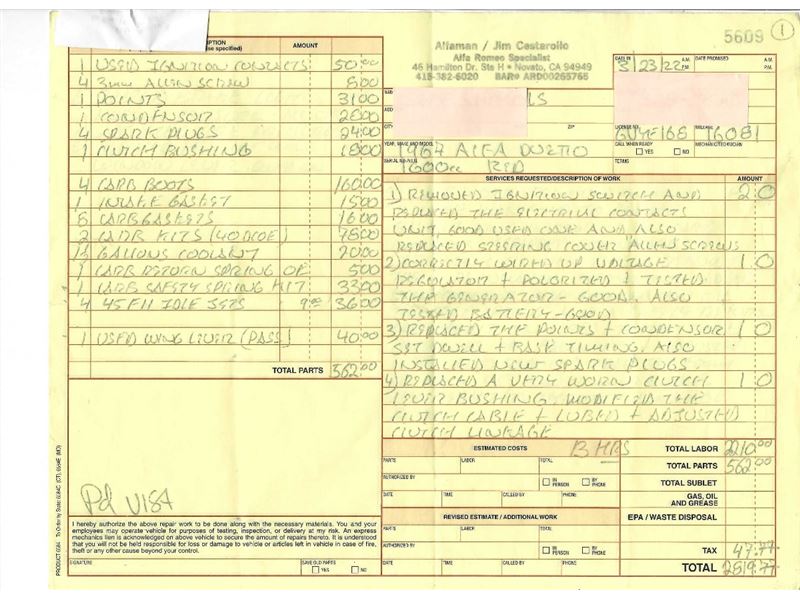 5609 1
Alfaman / Jim Castarollo
Alfa Romeo Specialist
46 Hamilton Dr. Ste H • Novato, CA 94949
415-382-6020 BAR# ARD00265765
AMOUNT
1 USED IGNITION CONTACTS 50.00
4 3mm ALLEN SCREW 8.00
1 POINTS 31.00
1 CONDENSOR 28.00
4 SPARK PLUGS 24.00
1 CLUTCH BUSHING 18.00
4 CARB BOOTS 160.00
1 INTAKE GASKET 15.00
CARB GASKETS 16.00
2 CARB KITS (40 DCOE) 78.00
GALLONS COOLANT 20.00
1 CARB RETURN SPRING 5.00
1 CARB SAFETY SPRING KIT 33.00
4 45F11 IDLE JETS 9 ea 36.00
1 USED WING LEVER (PASS) 40.00
TOTAL PARTS 562.00
Pd VISA
I hereby authorize the above repair work to be done along with the necessary materials. You and your
employees may operate vehicle for purposes of testing, inspection, or delivery at my risk. An express
mechanics lien is acknowledged on above vehicle to secure the amount of repairs thereto. It is understood
that you will not be held responsible for loss or damage to vehicle or articles left in vehicle in case of fire,
theft or any other cause beyond your control.
SIGNATURE
SAVE OLD PARTS
YES NO
DATE IN 3/23/22 A.M. P.M. DATE PROMISED A.M. P.M.
LS
CITY ZIP LICENSE NO. MILEAGE 16081
YEAR, MAKE AND MODEL 1967 ALFA DUETTO CALL WHEN READY YES NO
SERIAL NO. 1600cc RED TERMS
SERVICES REQUESTED/DESCRIPTION OF WORK AMOUNT
1) REMOVED IGNITION SWITCH AND 2 0
REPLACED THE ELECTRICAL CONTACTS
UNIT, GOOD USED ONE AND ALSO
REPLACED STEERING COVER ALLEN SCREWS
2) CORRECTLY WIRED UP VOLTAGE 1 0
REGULATOR + POLORIZED + TESTED
THE GENERATOR - GOOD. ALSO
TESTED BATTERY - GOOD
3) REPLACED THE POINTS + CONDENSOR 1 0
SET DWELL + BASE TIMING. ALSO
INSTALLED NEW SPARK PLUGS.
4) REPLACED A VERY WORN CLUTCH 1 0
LEVER BUSHING, MODIFIED THE
CLUTCH CABLE + LUBED + ADJUSTED
CLUTCH LINKAGE
ESTIMATED COSTS 13 HRS TOTAL LABOR 2210.00
PARTS LABOR TOTAL TOTAL PARTS 562.00
AUTHORIZED BY IN PERSON BY PHONE TOTAL SUBLET
DATE TIME CALLED BY PHONE GAS, OIL AND GREASE
REVISED ESTIMATE / ADDITIONAL WORK EPA / WASTE DISPOSAL
PARTS LABOR TOTAL
AUTHORIZED BY IN PERSON BY PHONE TAX 47.77
DATE TIME CALLED BY PHONE TOTAL 2819.77